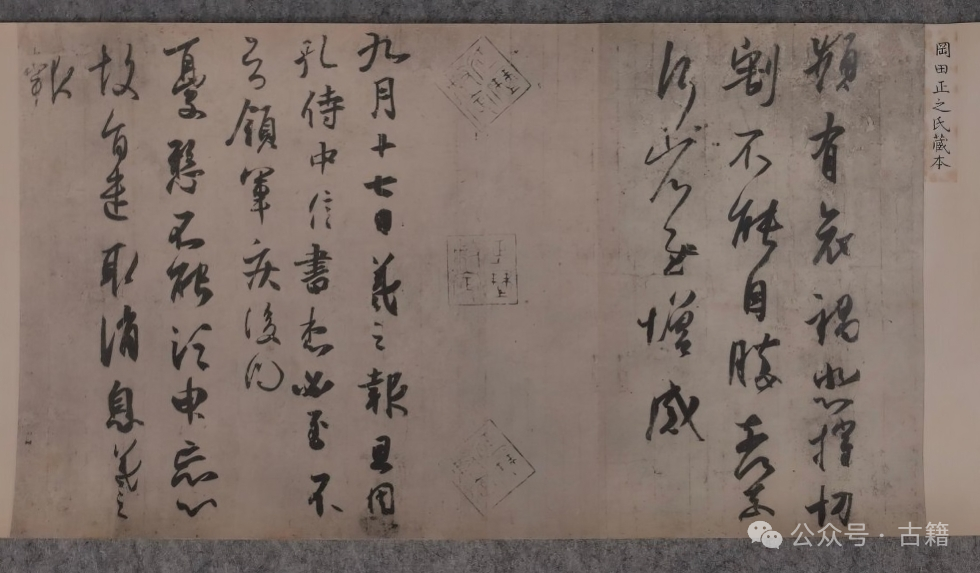 岡田正之氏藏本
頻有哀禍悲摧切
割不能自勝奈何奈
何省慰增感
九月十七日羲之報且因
孔侍中信書想必至不
知領軍疾後問
憂懸不能須臾忘心
故旨遣取消息羲之
報
公众号·古籍